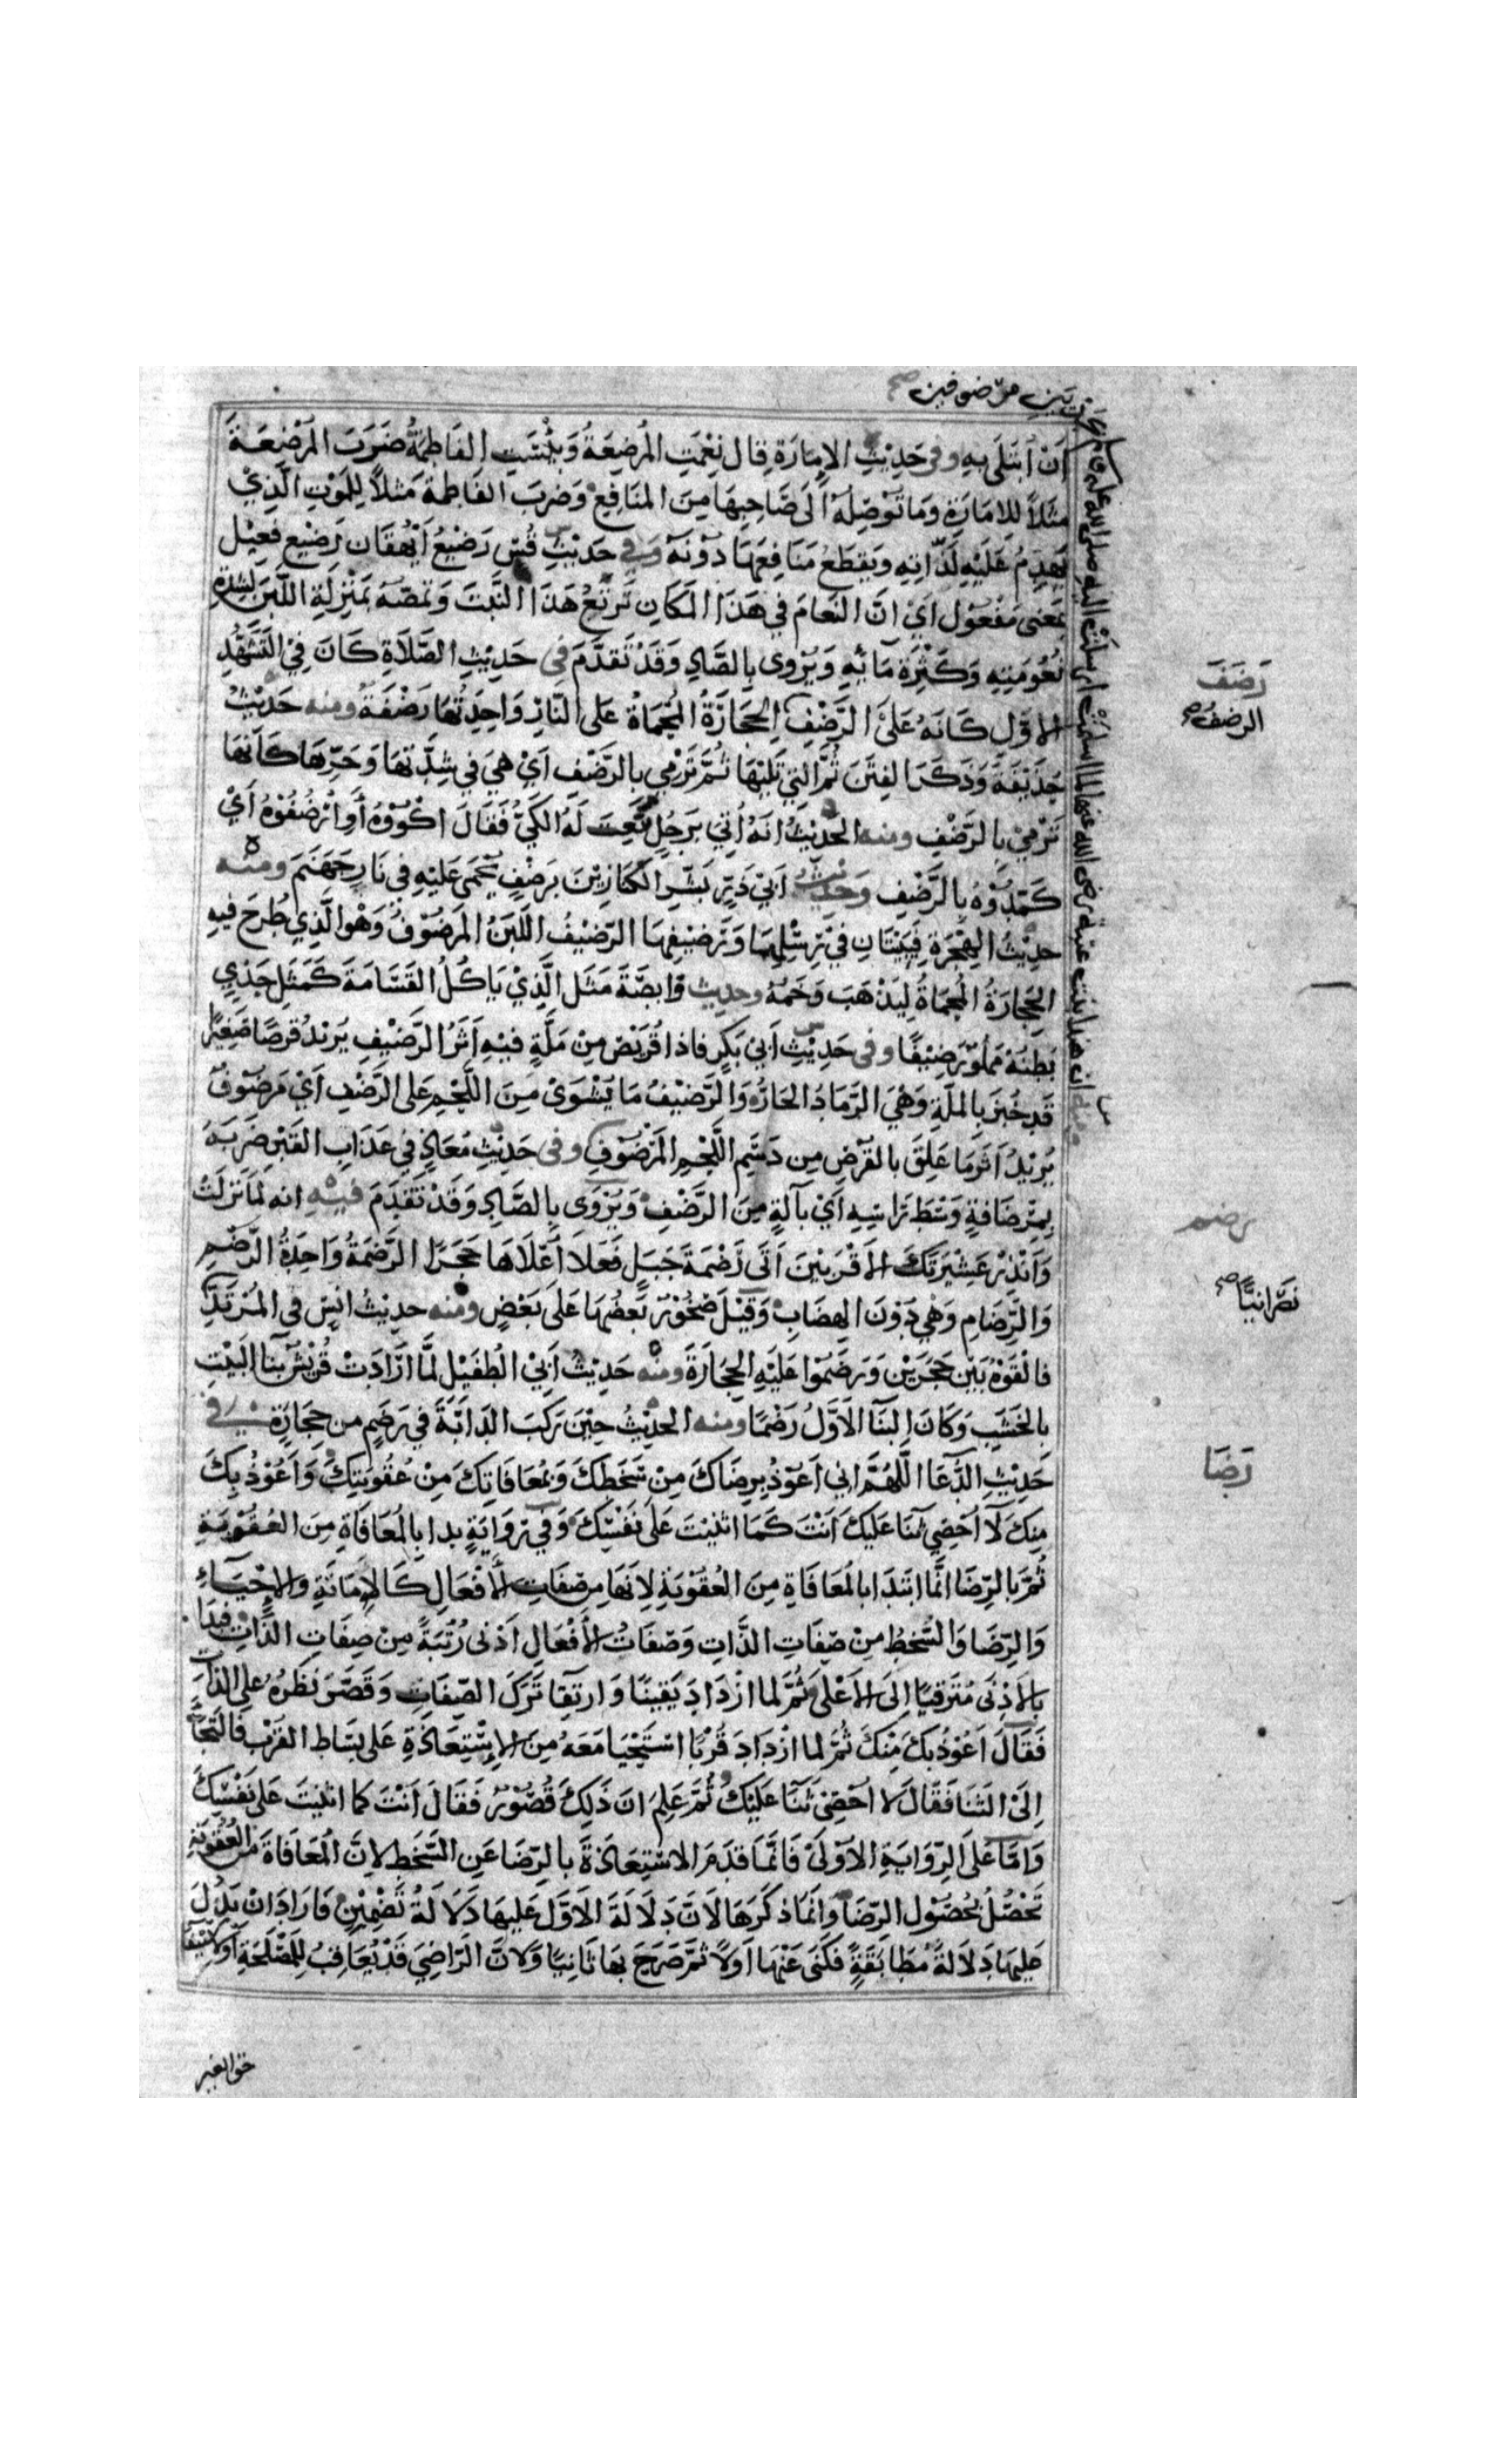 أَنْ أُبْتَلَى بِهِ وفي حَدِيْثِ الإِمَارَةِ قال نِعْمَتِ المُرْضِعَةُ وَبِئْسَتِ الفَاطِمَةُ ضَرَبَ المُرْضِعَةَ
مَثَلاً لِلإمَارَةِ وَمَا تُوَصِّلُهُ اِلَى صَاحِبِهَا مِنَ المَنَافِعِ وَضَرَبَ الفَاطِمَةَ مَثلاً لِلْمَوْتِ الَّذِيْ
يَهْدِمُ عَلَيْهِ لَذَّاتِهِ وَيَقْطَعُ مَنَافِعَهَا دُوْنَهُ وَفِي حَدِيْثِ قُسّ رَضِيْعُ أَيْهُقَان رَضِيْع فَعِيْل
بمَعْنى مَفْعُوْل اَيْ انَّ النَّعَامَ فِي هَذَا المَكَانِ تَرْتَعُ هَذَا النَّبْتَ وَتَمُصّهُ بِمَنْزِلَةِ اللَّبَنِ لِشِدَّةِ
نُعُوْمَتِهِ وَكَثْرَةِ مَائِهِ وَيُرْوى بِالصَّادِ وَقَدْ تَقَدَّمَ فِي حَدِيْثِ الصَّلَاةِ كَانَ فِيْ التَّشَهُّدِ
الاَوَّلِ كَانَهُ عَلَى الرَّضْفِ الحِجَارَةُ المُحْمَاةُ عَلَى النَّارِ وَاحِدَتُهَا رَضْفَةٌ ومنه حَدِيْثُ
حُذَيْفَةَ وَذَكَرَ الفِتَنَ ثُمَّ الَّتِي تَلِيْهَا ثُمَّ تَرْمِي بِالرَّضْفِ اَيْ هِيَ فِي شِدَّتِهَا وَحَرِّهَا كَاَنَّهَا
تَرْمِيْ بِالرَّضْفِ ومنه الحَدِيْثُ انَهُ اُتِيَ بِرَجُلٍ نُعِتَ لَهُ الكَيُّ فَقَالَ اكْوُوْهُ أَوِ ارْضُفُوْهُ اَيْ
كَمِّدُوْهُ بِالرَّضْفِ وَحَدِيْثُ اَبِيْ ذَرٍّ بَشِّرِ الكَنَّازِيْنَ بِرَضْفٍ يُحْمَى عَلَيْهِ فِي نَارِ جَهَنَّمَ ومنه
حَدِيْثُ الهِجْرَةِ فَيَبِيْتَانِ فِيْ رِسْلِهَا وَرَضِيْفِهَا الرَّضِيْفُ اللَّبَنُ المَرْضُوْفُ وَهُوَ الَّذِي طُرِحَ فِيْهِ
الحِجَارَةُ المُحْمَاةَ لِيَذْهَبَ وَخَمُهُ وحديث وَابِصَةَ مَثَلَ الَّذِيْ يَاكُلُ القَسَامَةَ كَمَثَلِ جَدْيٍ
بَطْنُهُ مَمْلُوّ رَضِيْفًا وفي حَدِيْثِ اَبِيْ بَكَرٍ فاذا قُرَيْصٌ مِنْ مَلَّةٍ فِيْهِ اَثَرُ الرَّضِيْفِ يُرِيْدُ قُرصًا صَغِيْرًا
قَدْ خُبِزَ بِالمَلَّةِ وَهْيَ الرَّمَادُ الحَارُّ وَالرَّضِيْفُ مَا يُشْوَى مِنَ اللَّحْمِ عَلى الرَّضْفِ اَيْ مَرْضُوْفٌ
يُرِيْدُ اَثَرَ مَا عَلِقَ بِالقُرْصِ مِن دَسَمِ اللَّحْمِ المَرْضُوْفِ وفي حَدِيْثِ مُعَاذٍ فِي عَذَابِ القَبْرِ ضَرَبَهُ
بِمِرْضَافَةٍ وَسْطَ رَاسِهِ اَيْ بِآلَةٍ مِنَ الرَّضْفِ وَيُرْوَى بِالصَّادِ وَقَدْ تَقَدَّمَ فيه انه لَمَّا نَزَلَتْ
وَاَنْذِرْ عَشِيْرَتَكَ الاَقْرَبِيْنَ اَتَى رَضْمَةَ جَبَلٍ فَعَلاَ أَعْلَاهَا حَجَرًا الرَّضْمَةُ وَاحِدَةُ الرَّضْمِ
وَالرِّضَامِ وَهْيَ دُوْنَ الهِضَابِ وَقِيْلَ صُخُوْرٌ بَعْضُهَا عَلَى بَعْضٍ ومنه حديثُ انَسٍ فِي المُرْتَدِّ
فَالْقَوْهُ بَيْنَ حَجَرَيْنِ وَرَضَمُوْا عَلَيْهِ الحِجَارَةَ ومنه حَدِيْثُ اَبِيْ الطُفَيْلِ لَمَّا ارَادَتْ قُرَيْشٌ بِنَا البَيْتِ
بِالخَشَبِ وَكَانَ البِنَا الاَوَّلُ رَضْمًا ومنه الحَدِيْثُ حِيْنَ رَكَبَ الدَابَّةَ فِي رَضْمٍ من حِجَارَةٍ في
حَدِيْثِ الدُّعَا اللَّهُمَّ اني اَعُوْذُ بِرِضَاكَ مِنْ سَخَطِكَ وَبِمُعَافَاتِكَ مِنْ عُقُوبَتِكَ وَاَعُوْذُ بِكَ
مِنكَ لَا اُحْصِي ثَنَا عَلَيْكَ اَنْتَ كَمَا اثْنَيْتَ عَلَى نَفْسِكَ وَفِي رِوَايَةٍ بدا بِالمُعَافَاةِ مِنَ العُقُوْبَةِ
ثُمَّ بِالرِّضَا انَّمَا ابْتَدَا بالمُعَافَاةِ مِنَ العُقُوْبَةِ لِاَنَهَا مِن صِفَاتِ الأَفْعَالِ كَالاِمَاتَةِ وَالاِحْيَاءِ
وَالرِّضَا وَالسُّخْطُ مِنْ صِفَاتِ الذَّاتِ وَصفَاتُ الأَفْعَالِ اَدْنى رُتْبَةً مِنْ صِفَاتِ الذَّاتِ فبَدَا
بِالاَدْنَى مُتَرَقِيًا اِلَى الاَعْلَى ثُمَّ لَما ازْدَادَ يَقِيْنًا وَارتِقا تَرَكَ الصِّفَاتِ وَقَصَرَ نَظَرَهُ عَلى الذاتِ
فَقَالَ اَعُوْذُ بِكَ مِنْكَ ثُمَّ لما ازْدَادَ قُرْبًا اسْتَحْيَا مَعَهُ مِنَ الاِسْتِعَاذَةِ عَلى بِسَاط القُرْبِ فَالتَجَأَ
اِلَىْ الثَنَا فَقَالَ لا اُحْصِيْ ثَنَا عَلَيْكَ ثُمَّ عَلِمَ انَ ذَلِكَ قُصُوْرٌ فَقَالَ اَنْتَ كما اثنيتَ عَلى نَفْسِكَ
وَامَّا عَلَى الرِّوَايَةِ الاُوْلَىْ فَانَّمَا قَدَمَ الاسْتِعَاذَةَ بِالرِّضَا عَنِ السَّخَطِ لانَ المُعَافَاةَ مِنَ العُقُوْبَةِ
تَحْصُلُ بِحُصُوْلِ الرِّضَا وَانَّمَا ذَكَرَهَا لاَنَّ دَلَالَةَ الاَوَّلِ عَلَيهَا دَلَالَةُ تَضْمِيْنٍ فَارَادَ انْ يَدُلَّ
عَلَيهَا دَلَالَةَ مُطَابَقَةٍ فَكَنَى عَنْهَا اَوَلاً ثمَّ صَرَحَ بهَا ثَانِيًا وَلانَّ الرَّاضِيَ قَدْ يُعَاقِبُ لِلْمَصْلَحَةِ أَوْ لاسْتِيْفَاء
حق الغير
رَضَفَ
الرضفُ صح
رضم
نَصْرَانِيًّا صح
رَضَا